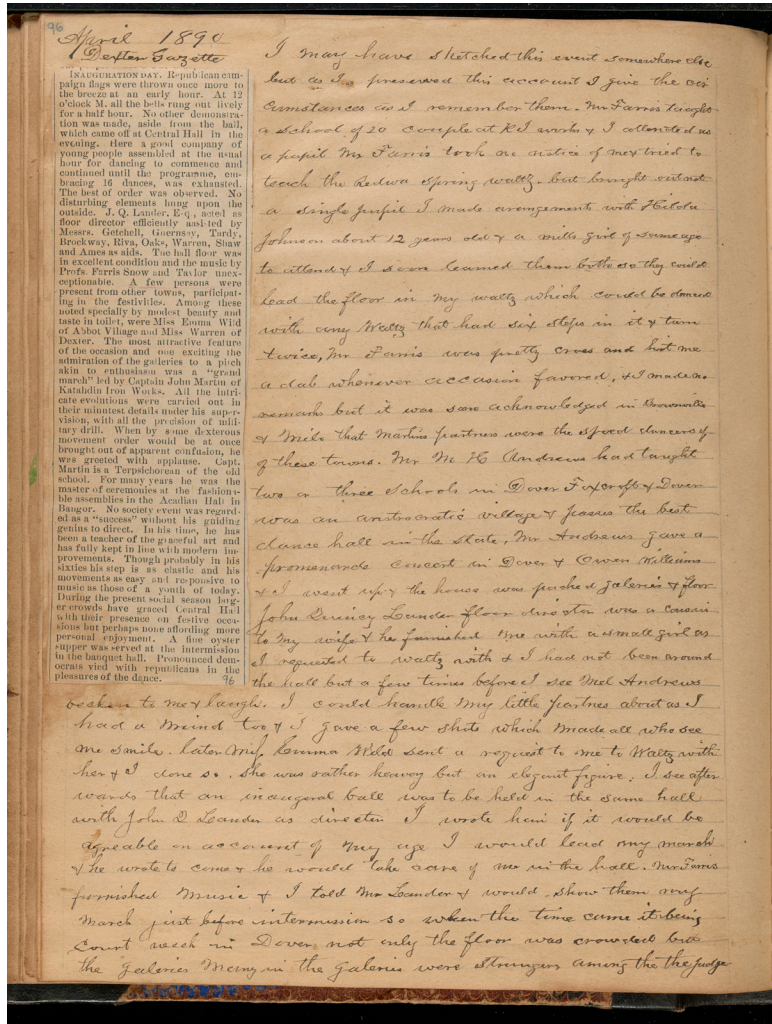 96
April 1890
Dexter Gazette
INAUGURATION DAY. Republican cam-
paign flags were thrown once more to
the breeze at an early hour. At 12
o'clock M. all the bells rung out lively
for a half hour. No other demonstra-
tion was made, aside from the ball,
which came off at Central Hall in the
evening. Here a good company of
young people assembled at the usual
hour for dancing to commence and
continued until the programme, em-
bracing 16 dances, was exhausted.
The best of order was observed. No
disturbing elements hung upon the
outside. J. Q. Lander, Esq., acted as
floor director efficiently assisted by
Messrs. Getchell, Guernsey, Tardy,
Brockway, Riva, Oaks, Warren, Shaw
and Ames as aids. The hall floor was
in excellent condition and the music by
Profs. Farris Snow and Taylor unex-
ceptionable. A few persons were
present from other towns, participat-
ing in the festivities. Among these
noted specially by modest beauty and
taste in toilet, were Miss Emma Wild
of Abbot Village and Miss Warren of
Dexter. The most attractive feature
of the occasion and one exciting the
admiration of the galleries to a pitch
akin to enthusiasm was a "grand
march" led by Captain John Martin of
Katahdin Iron Works. All the intri-
cate evolutions were carried out in
their minutest details under his super-
vision, with all the precision of mili-
tary drill. When by some dexterous
movement order would be at once
brought out of apparent confusion, he
was greeted with applause. Capt.
Martin is a Terpsichorean of the old
school. For many years he was the
master of ceremonies at the fashiona-
ble assemblies in the Acadian Hall in
Bangor. No society event was regard-
ed as a "success" without his guiding
genius to direct. In his time, he has
been a teacher of the graceful art and
has fully kept in line with modern im-
provements. Though probably in his
sixties his step is as elastic and his
movements as easy and responsive to
music as those of a youth of today.
During the present social season larg-
er crowds have graced Central Hall
with their presence on festive occa-
sions but perhaps none affording more
personal enjoyment. A fine oyster
supper was served at the intermission
in the banquet hall. Pronounced dem-
ocrats vied with republicans in the
pleasures of the dance.
96
I may have sketched this event somewhere else
but as I preserved this account I give the cir
cumstances as I remember them. Mr Farris taught
a School of 20 couple at K I works & I attended as
a pupil Mr Farris took no notice of me & tried to
teach the Redwa Spring waltz. but brought out not
a single pupil I made arangements with Hilda
Johnson about 12 years old & a mills girl of same age
to attend & I soon learned them both so they could
lead the floor in my waltz which could be danced
with any Waltz that had six steps in it & turn
twice, Mr Farris was pretty cross and hit me
a dab whenever occasion favored, & I made no
remark but it was soon acknowledged in Brownville
& Milo that Martins partners were the speed dancers of
of these towns. Mr M H Andrews had taught
two or three Schools in Dover Foxcroft & Dover
was an aristocratic village & posses the best
dance hall in the State. Mr Andrews gave a
promenade concert in Dover & Owen Williams
& I went up & the house was packed galeries & floor
John Quincy Lander floor director was a cousin
to my wife & he furnished me with a small girl as
I requested to waltz with & I had not been around
the hall but a few times before I see Mel Andrews
becken to me & laugh. I could handle my little partner about as I
had a mind too & I gave a few shots which made all who see
me smile. later My. Emma Wild sent a request to me to Waltz with
her & I done so. She was rather heavey but an elegant figure. I see after
wards that an inaugural ball was to be held in the same hall
with John Q Lander as director I wrote him if it would be
agreable on account of my age I would lead my march
& he wrote to come & he would take care of me in the hall. Mr Farris
furnished Music & I told Mr Lander I would show them my
March just before intermission so when the time came it being
Court week in Dover not only the floor was crowded but
the galeries Many in the Galeries were Strangers among the the judge